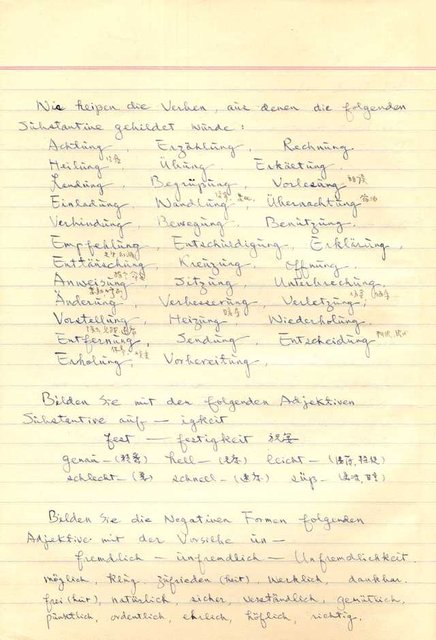 Wie heißen die Verben, aus denen die folgenden
Substantive gebildet würde:
Achtung, Erzählung, Rechnung.
Heilung, Übung, Erkältung
Landung, Begrüßung, Vorlesung
Einladung, Wandlung, Übernachtung
Verbindung, Bewegung, Benützung.
Empfehlung, Entschuldigung, Erklärung,
Enttäuschung, Kreuzung, Öffnung,
Anweisung, Sitzung, Unterbrechung.
Änderung, Verbesserung, Verletzung,
Vorstellung, Heizung, Wiederholung.
Entfernung, Sendung, Entscheidung
Erholung, Vorbereitung,
Bilden Sie mit der folgenden Adjektiven
Substantive auf - igkeit
fest — festigkeit
genau — hell — leicht —
schlecht — schnell — süß —
Bilden Sie die Negativen Formen folgenden
Adjektive mit der Vorsilbe ün —
freundlich — ünfreundlich — Unfreundlichkeit.
möglich, klug, zufrieden (heit), merklich, dankbar.
frei (heit), natürlich, sicher, verständlich, gemütlich,
pünktlich, ordentlich, ehrlich, höflich, richtig.